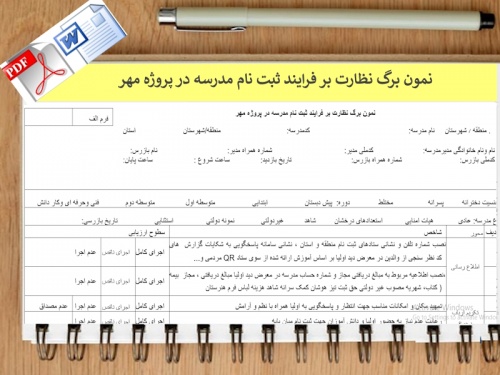 PDF
W
نمون برگ نظارت بر فرایند ثبت نام مدرسه در پروژه مهر
نمون برگ نظارت بر فرایند ثبت نام مدرسه در پروژه مهر
فرم الف
منطقه / شهرستان نام مدرسه: کدمدرسه: منطقه/شهرستان استان
نام ونام خانوادگی مدیرمدرسه: کدملی مدیر: شماره همراه مدیر: نام بازرس:
کدملی بازرس: شماره همراه بازرس: تاریخ بازدید: ساعت شروع : ساعت پایان:
جنسیت دخترانه پسرانه مختلط دوره: پیش دبستان ابتدایی متوسطه اول متوسطه دوم فنی وحرفه ای وکار دانش
نوع مدرسه: عادی هیات امنایی استعدادهای درخشان شاهد غیردولتی نمونه دولتی استثنایی تاریخ بازرسی:
ردیف محور شاخص سطوح ارزیابی
اطلاع رسانی
نصب شماره تلفن و نشانی ستادهای ثبت نام منطقه و استان ، نشانی سامانه پاسخگویی به شکایات گزارش های
کد نظر سنجی از والدین در معرض دید اولیا بر اساس آموزش ارائه شده از سوی ستاد QR مردمی و...
اجرای کامل اجرای ناقص عدم اجرا
نصب اطلاعیه مربوط به مبالغ دریافتی مجاز و شماره حساب مدرسه در معرض دید اولیا مبالغ دریافتی ، مجاز بیمه
( کتاب، شهریه مصوب غیر دولتی حق ثبت نیز هوشان کمک سرانه شاهد هزینه لباس فرم هنرستان
اجرای کامل اجرای ناقص عدم اجرا
تمهید مکان و امکانات مناسب جهت انتظار و پاسخگویی به اولیا همراه با نظم و آرامش
اجرای کامل اجرای ناقص عدم مصداق
رعایت عدم نیاز به حضور اولیا و دانش آموزان جهت ثبت نام میان پایه
اجرای کامل اجرای ناقص عدم اجرا